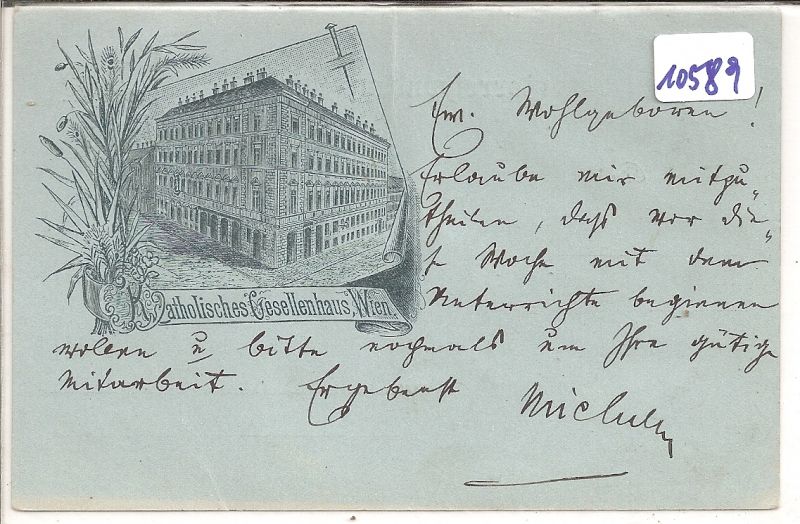 10589
Ew. Wohlgeboren!
Erlaube mir mitzu„
theilen, daß wir die„
se Woche mit dem
Unterrichte beginnen
wollen u bitte nochmals um Ihre gütige
Mitarbeit. Ergebenst
Katholisches Gesellenhaus, Wien.